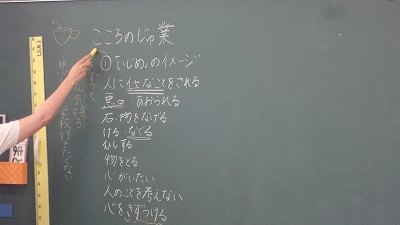 こころのじゅ業
①「いじめ」のイメージ
人にイヤなことをされる
悪口 あおられる
石・物をなげる
ける・なぐる
ムシする
物をとる
心がいたい
人のことを考えない
心をきずつける
学校行きたくない